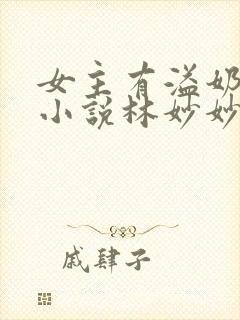 女主有溢奶
小说林妙妙
戚肆子